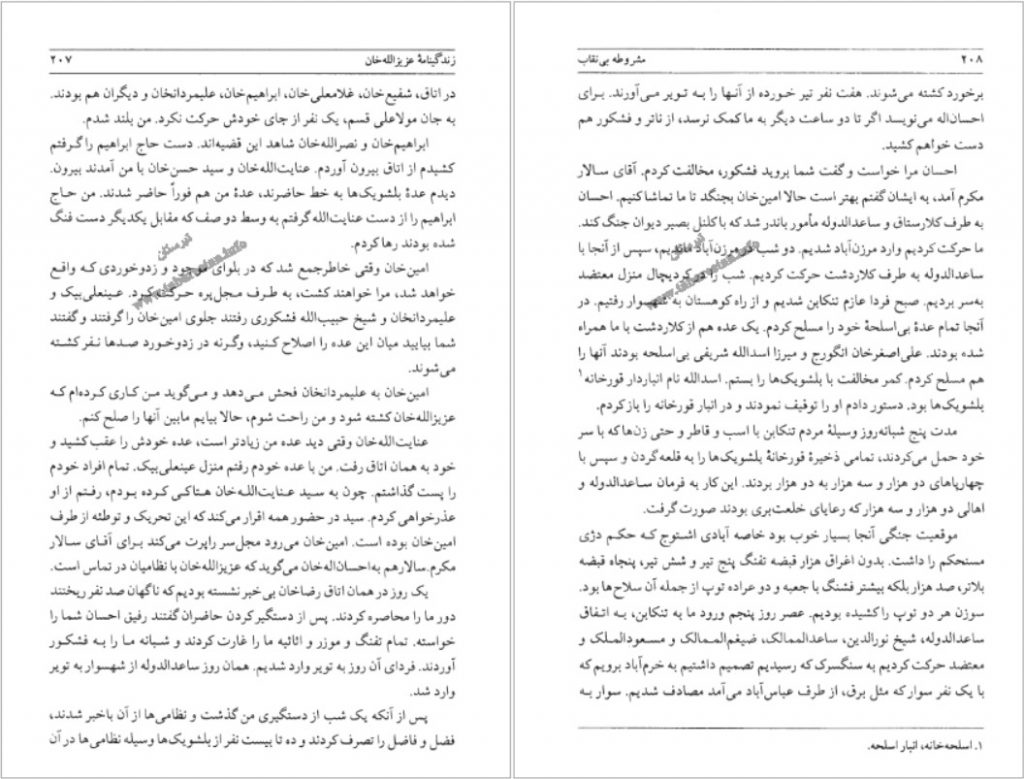 زندگینامهٔ عزیزالله‌خان ۲۰۷
در اتاق، شفیع‌خان، غلامعلی‌خان، ابراهیم‌خان، علیمردانخان و دیگران هم بودند.
به جان مولاعلی قسم، یک نفر از جای خودش حرکت نکرد. من بلند شدم.
ابراهیم‌خان و نصرالله‌خان شاهد این قضیه‌اند. دست حاج ابراهیم را گرفتم
کشیدم از اتاق بیرون آوردم. عنایت‌الله‌خان و سید حسن‌خان با من آمدند بیرون.
دیدم عدهٔ بلشویک‌ها به خط حاضرند، عدهٔ من هم فوراً حاضر شدند. من حاج
ابراهیم را از دست عنایت‌الله گرفتم به وسط دو صف که مقابل یکدیگر دست فنگ
شده بودند رها کردم.
امین‌خان وقتی خاطرجمع شد که در بلوای موجود و زدوخوردی که واقع
خواهد شد، مرا خواهند کشت، به طرف مجل‌پره حرکت کرد. عینعلی‌بیک و
علیمردانخان و شیخ حبیب‌الله فشکوری رفتند جلوی امین‌خان را گرفتند و گفتند
شما بیایید میان این عده را اصلاح کنید، وگرنه در زدوخورد صدها نفر کشته
می‌شوند.
امین‌خان به علیمردانخان فحش می‌دهد و می‌گوید من کاری کرده‌ام که
عزیزالله‌خان کشته شود و من راحت شوم، حالا بیایم مابین آنها را صلح کنم.
عنایت‌الله‌خان وقتی دید عده من زیادتر است، عده خودش را عقب کشید و
خود به همان اتاق رفت. من با عده خودم رفتم منزل عینعلی‌بیک. تمام افراد خودم
را پست گذاشتم. چون به سید عنایت‌الله‌خان هتاکی کرده بودم، رفتم از او
عذرخواهی کردم. سید در حضور همه اقرار می‌کند که این تحریک و توطئه از طرف
امین‌خان بوده است. امین‌خان می‌رود مجل‌سر راپرت می‌کند برای آقای سالار
مکرم. سالار هم به احسان‌اله‌خان می‌گوید که عزیزالله‌خان با نظامیان در تماس است.
یک روز در همان اتاق رضاخان بی‌خبر نشسته بودیم که ناگهان صد نفر ریختند
دور ما را محاصره کردند. پس از دستگیر کردن حاضران گفتند رفیق احسان شما را
خواسته. تمام تفنگ و موزر و اثاثیه ما را غارت کردند و شبانه ما را به فشکور
آوردند. فردای آن روز به تویر وارد شدیم. همان روز ساعدالدوله از شهسوار به تویر
وارد شد.
پس از آنکه یک شب از دستگیری من گذشت و نظامی‌ها از آن باخبر شدند،
فضل و فاضل را تصرف کردند و ده تا بیست نفر از بلشویک‌ها وسیله نظامی‌ها در آن
۲۰۸ مشروطه بی‌نقاب
برخورد کشته می‌شوند. هفت نفر تیر خورده از آنها را به تویر می‌آورند. برای
احسان‌اله می‌نویسد اگر تا دو ساعت دیگر به ما کمک نرسد، از ناتر و فشکور هم
دست خواهم کشید.
احسان مرا خواست و گفت شما بروید فشکور، مخالفت کردم. آقای سالار
مکرم آمد، به ایشان گفتم بهتر است حالا امین‌خان بجنگد تا ما تماشا کنیم. احسان
به طرف کلارستاق و ساعدالدوله مأمور باندر شد که با کلنل بصیر دیوان جنگ کند.
ما حرکت کردیم وارد مرزن‌آباد شدیم. دو شب در مرزن‌آباد ماندیم، سپس از آنجا با
ساعدالدوله به طرف کلاردشت حرکت کردیم. شب را در کردیچال منزل معتضد
به‌سر بردیم. صبح فردا عازم تنکابن شدیم و از راه کوهستان به شهسوار رفتیم. در
آنجا تمام عدهٔ بی‌اسلحهٔ خود را مسلح کردم. یک عده هم از کلاردشت با ما همراه
شده بودند. علی‌اصغرخان انگورج و میرزا اسدالله شریفی بی‌اسلحه بودند آنها را
هم مسلح کردم. کمر مخالفت با بلشویک‌ها را بستم. اسدالله نام انباردار قورخانه۱
بلشویک‌ها بود. دستور دادم او را توقیف نمودند و در انبار قورخانه را باز کردم.
مدت پنج شبانه‌روز وسیلهٔ مردم تنکابن با اسب و قاطر و حتی زن‌ها که با سر
خود حمل می‌کردند، تمامی ذخیرهٔ قورخانهٔ بلشویک‌ها را به قلعه گردن و سپس با
چهارپاهای دو هزار و سه هزار به دو هزار بردند. این کار به فرمان ساعدالدوله و
اهالی دو هزار و سه هزار که رعایای خلعت‌بری بودند صورت گرفت.
موقعیت جنگی آنجا بسیار خوب بود خاصه آبادی اشتوج که حکم دژی
مستحکم را داشت. بدون اغراق هزار قبضه تفنگ پنج تیر و شش تیر، پنجاه قبضه
بلاتر، صد هزار بلکه بیشتر فشنگ با جعبه و دو عراده توپ از جمله آن سلاح‌ها بود.
سوزن هر دو توپ را کشیده بودیم. عصر روز پنجم ورود ما به تنکابن، به اتفاق
ساعدالدوله، شیخ نورالدین، ساعدالممالک، ضیغم‌الممالک و مسعودالملک و
معتضد حرکت کردیم به سنگسرک که رسیدیم تصمیم داشتیم به خرم‌آباد برویم که
با یک نفر سوار که مثل برق، از طرف عباس‌آباد می‌آمد مصادف شدیم. سوار به
۱. اسلحه‌خانه، انبار اسلحه.